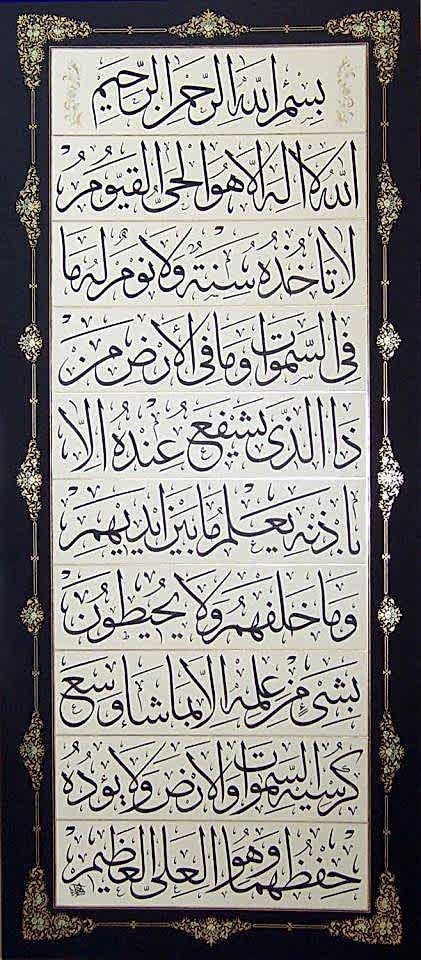 بسم الله الرحمن الرحيم
الله لا اله الا هو الحي القيوم
لا تاخذه سنة ولا نوم له ما
في السموات وما في الارض من
ذا الذي يشفع عنده الا
باذنه يعلم ما بين ايديهم
وما خلفهم ولا يحيطون
بشيء من علمه الا بما شاء وسع
كرسيه السموات والارض ولا يؤده
حفظهما وهو العلي العظيم